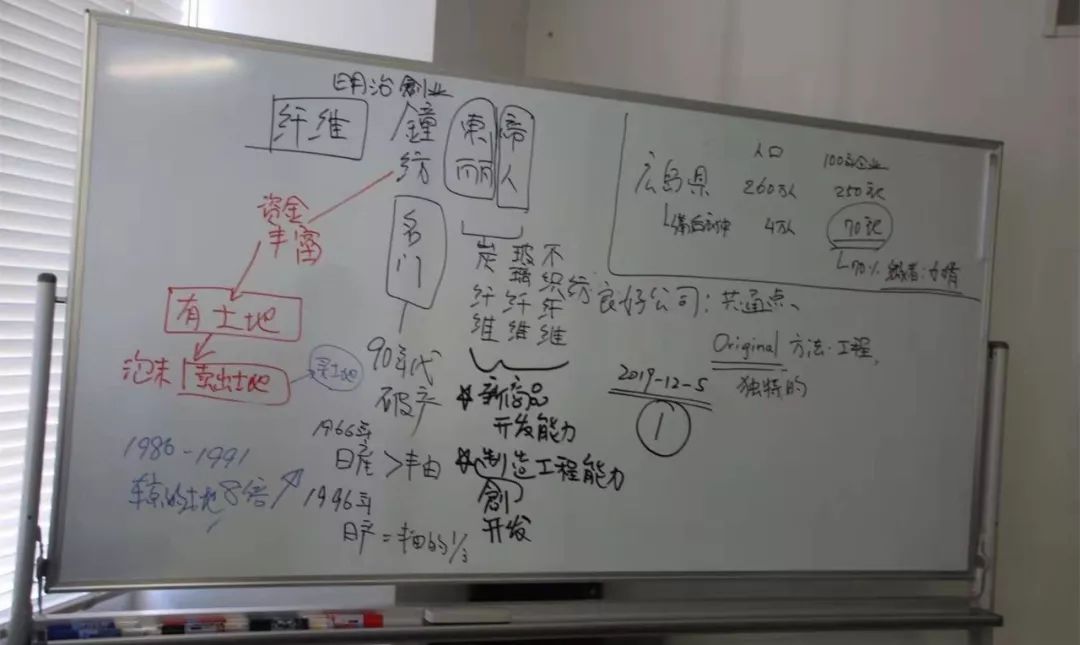 明治創业
纤维
鐘纺
東丽
帝人
资金
丰富
有土地
泡沫
卖出土地
买土地
1986-1991
东京的土地8倍
名门
90年代
破产
1966年
日産>丰田
1996年
日产=丰田的1/3
炭纤维
玻璃纤维
不织纤维
纺
新商品
开发能力
制造工程能力
創
开发
人口
100年企业
広島県
260万人
250家
4万人
70家
70%
良好公司:共通点、
Original 方法·工程,
独特的
2019-12-5
1